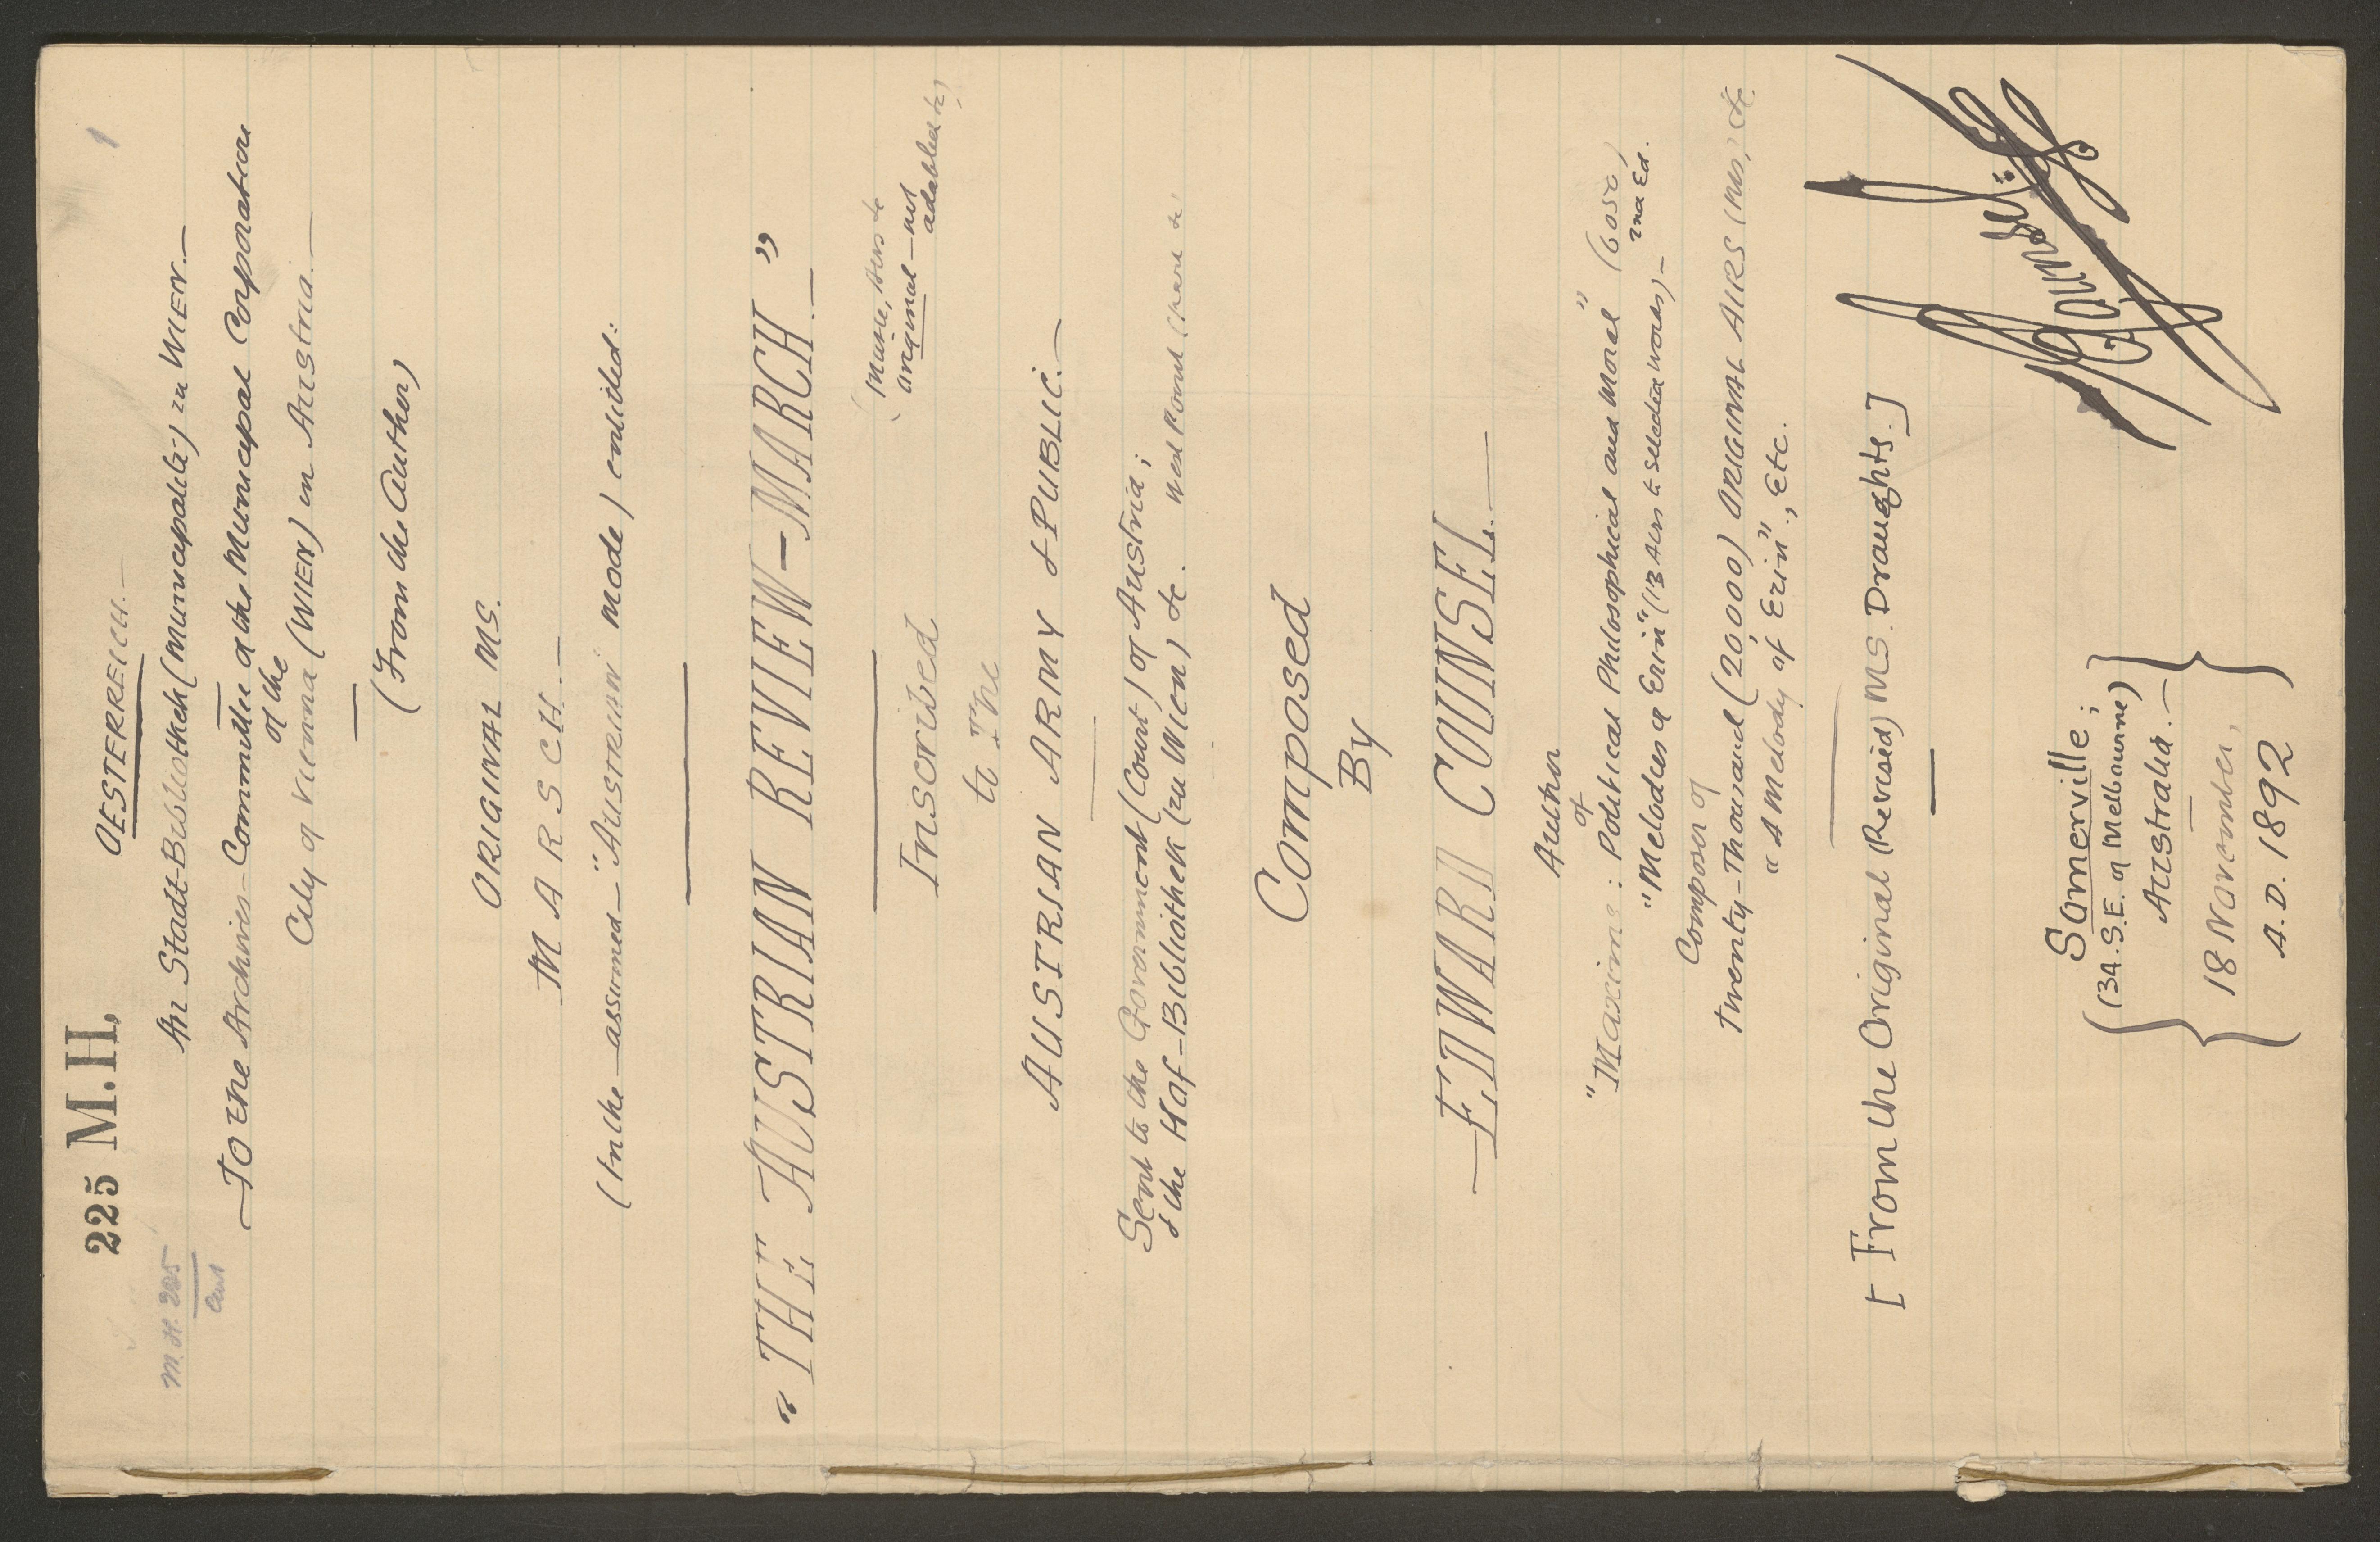 225 M.H.
1
M.H. 225
OESTERREICH.—
An Stadt-Bibliothek (Municipality) zu WIEN.—
To the Archives-Committee of the Municipal Corporation
of the
City of Vienna (WIEN) in Austria.—
(From the Author)
ORIGINAL MS.
MARSCH.—
(In the—assumed—"Austrian" mode) entitled:
"THE AUSTRIAN REVIEW-MARCH."
(Music, Airs &c
original—not
adabbled &c)
Inscribed
to The
AUSTRIAN ARMY & PUBLIC.—
Sent to the Government (Court) of Austria;
& the Hof-Bibliothek (zu Wien) &c.
Composed
By
—EDWARD COUNSEL.—
Author
of
"Maxims: Political Philosophical and Moral" (6050)
2nd Ed.
"Melodies of Erin" (13 Airs to selected words)—
Composer of
Twenty-Thousand (20,000) ORIGINAL AIRS (MS), &c
"A Melody of Erin", Etc.
[From the Original (Revised) MS. Draughts.]
Somerville;
(34. S.E. of Melbourne)
Australia.—
18 November,
A.D. 1892